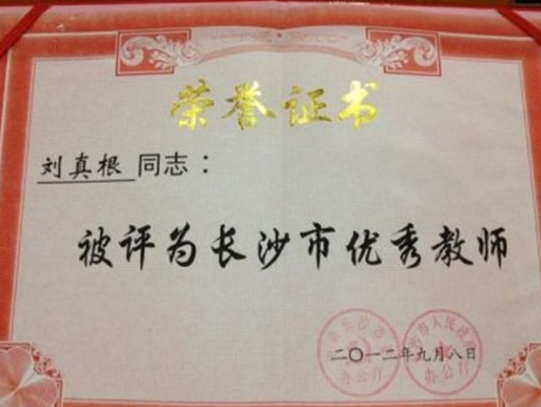 荣誉证书
刘真根 同志：
被评为长沙市优秀教师
二〇一二年九月八日
办公厅 办公厅